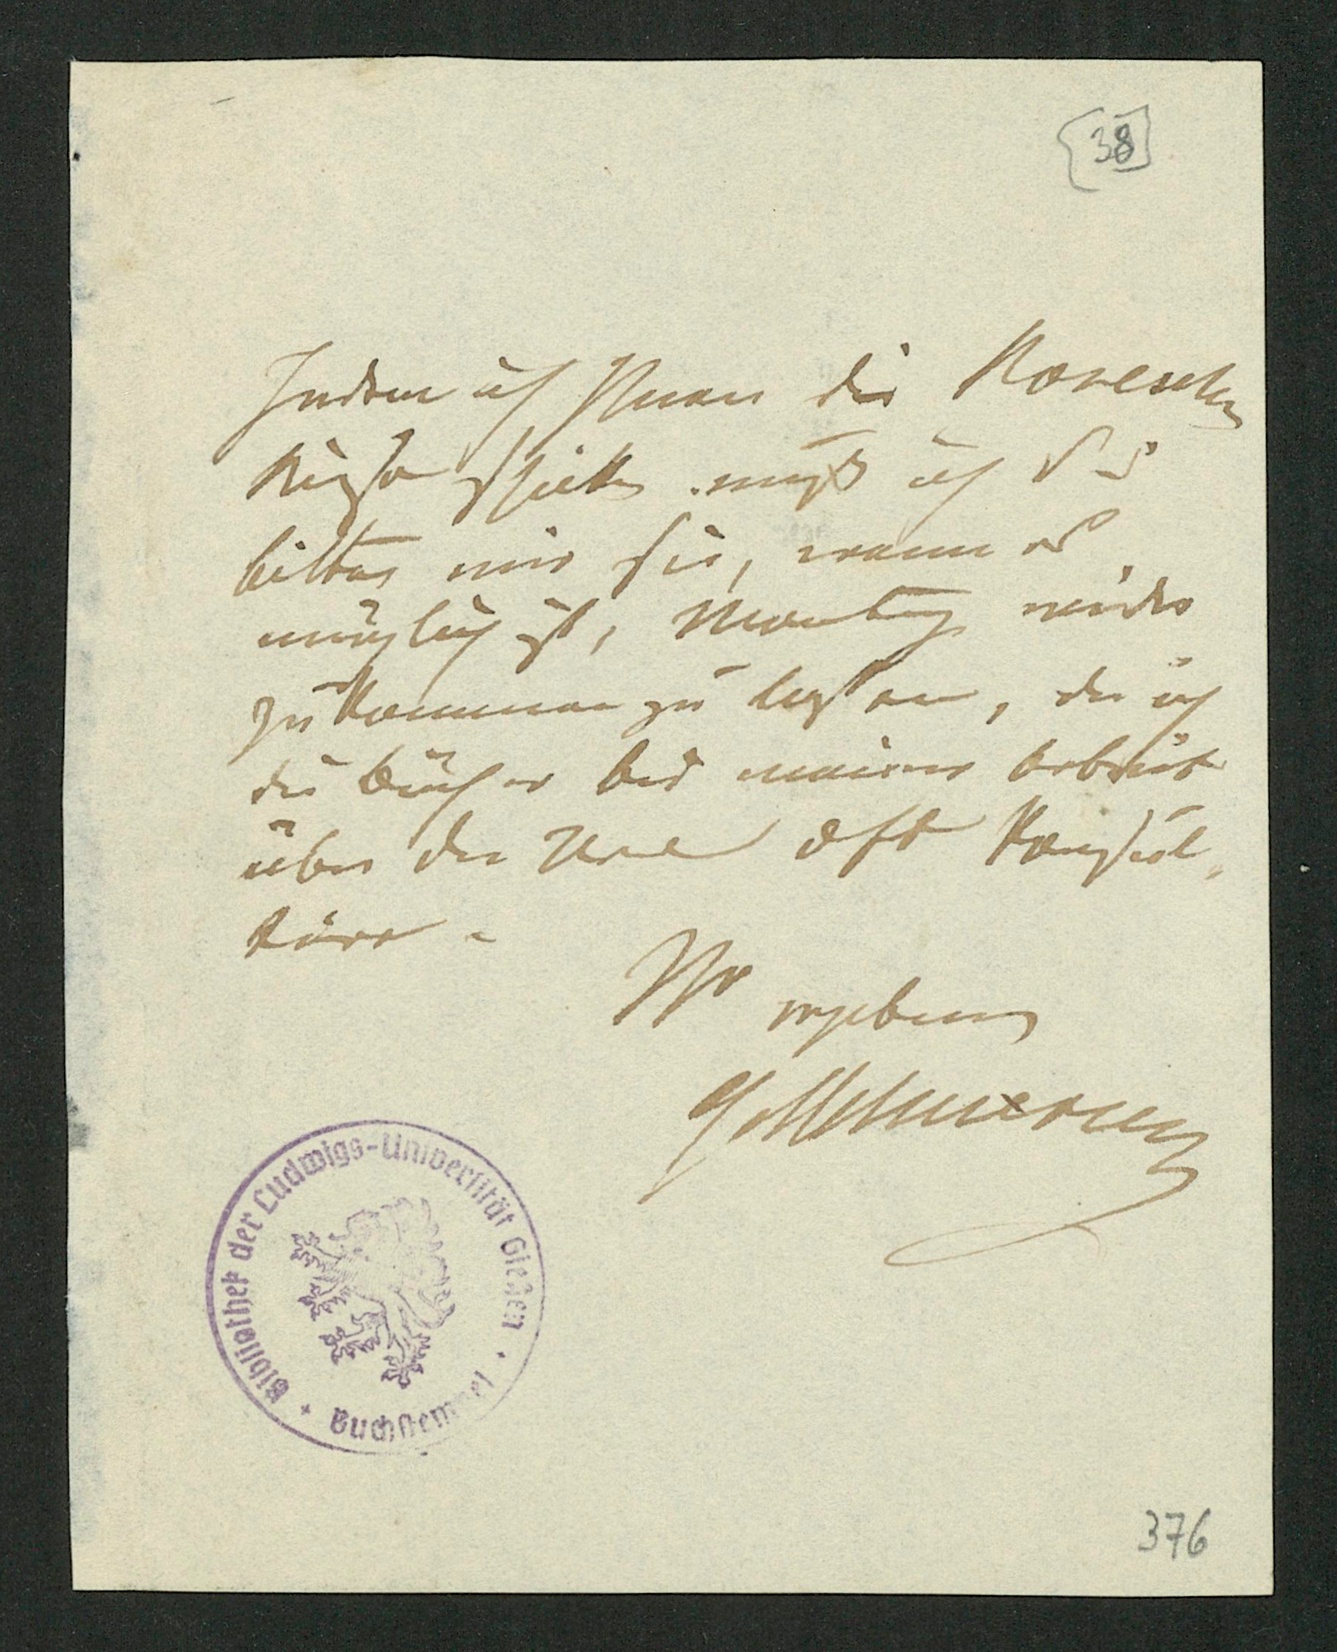 38
Indem ich Ihnen die
schicke muß ich Sie
bitten mir sie, wenn es
möglich ist, Montag wieder
zukommen zu lassen, da ich
die Bücher bei meiner Arbeit
über den oft konsul-
tire.
Ihr ergebener
Bibliothek der Ludwigs-Universität Gießen
Buchstempel
376